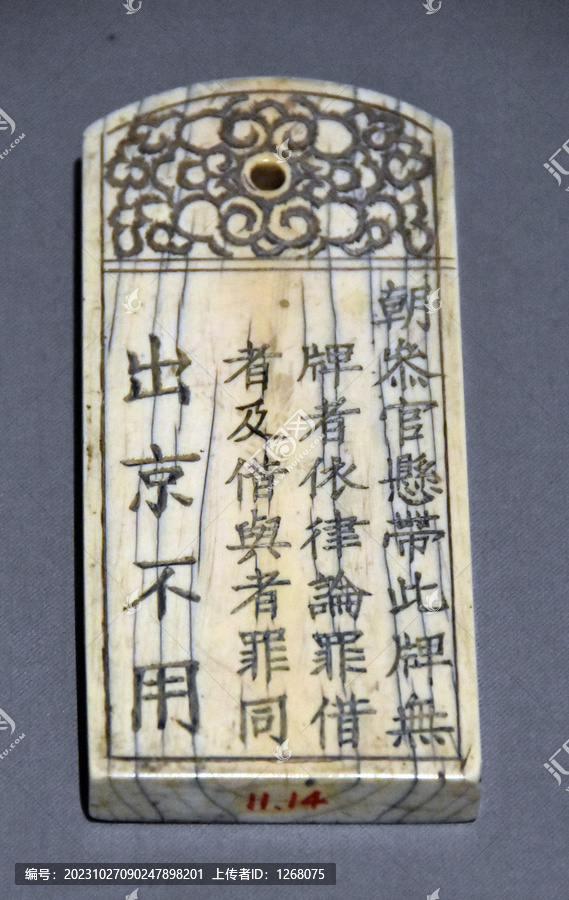 朝叅官懸帶此牌無
牌者依律論罪借
者及借與者罪同
出京不用
11.14
编号：20231027090247898201 上传者ID：1268075